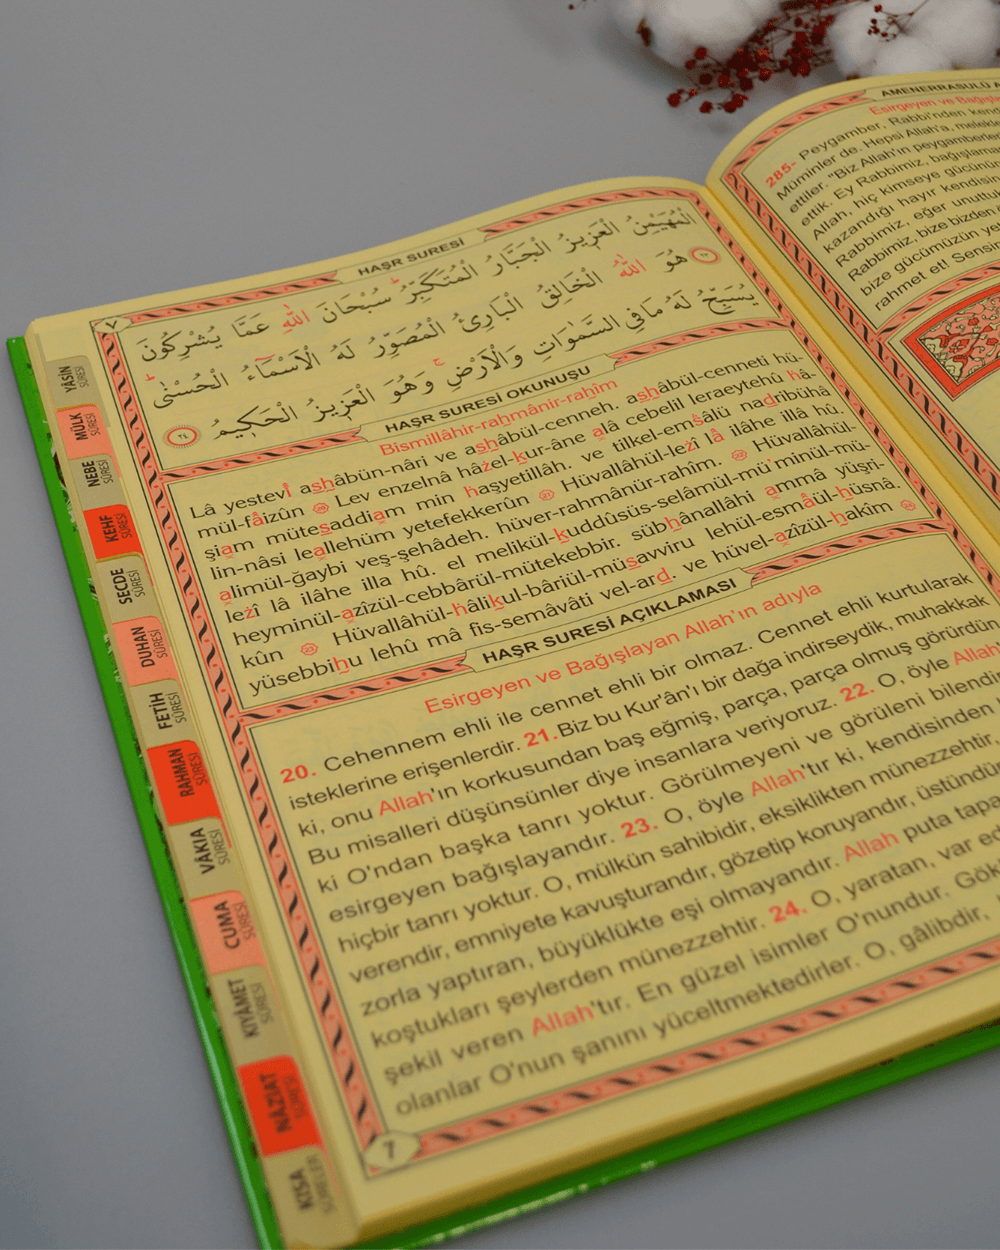 HAŞR SURESİ
الْمُهَيْمِنُ الْعَزِيزُ الْجَبَّارُ الْمُتَكَبِّرُ سُبْحَانَ اللّٰهِ عَمَّا يُشْرِكُونَ ﴿٢٣﴾
هُوَ اللّٰهُ الْخَالِقُ الْبَارِئُ الْمُصَوِّرُ لَهُ الْاَسْمَٓاءُ الْحُسْنٰى
يُسَبِّحُ لَهُ مَا فِي السَّمٰوَاتِ وَالْاَرْضِ وَهُوَ الْعَزِيزُ الْحَكِيمُ ﴿٢٤﴾
HAŞR SURESİ OKUNUŞU
Bismillâhir-rahmânir-rahîm
Lâ yestevî ashâbün-nâri ve ashâbül-cenneh. ashâbül-cenneti hü-
mül-fâizûn Lev enzelnâ hâzel-kur-âne alâ cebelil leraeytehû hâ-
şiam mütesaddiam min haşyetillâh. ve tilkel-emsâlü nadribühâ
lin-nâsi leallehüm yetefekkerûn 21 Hüvallâhül-lezî lâ ilâhe illâ hû.
alimül-ğaybi veş-şehâdeh. hüver-rahmânür-rahîm. Hüvallâhül-
lezî lâ ilâhe illa hû. el melikül-kuddûsüs-selâmül-mü'minül-mü-
heyminül-azîzül-cebbârül-mütekebbir. sübhânallâhi ammâ yüşri-
kûn 23 Hüvallâhül-hâlikul-bâriül-müsavviru lehül-esmâül-hüsnâ.
yüsebbihu lehû mâ fis-semâvâti vel-ard. ve hüvel-azîzül-hakîm
HAŞR SURESİ AÇIKLAMASI
Esirgeyen ve Bağışlayan Allah'ın adıyla
20. Cehennem ehli ile cennet ehli bir olmaz. Cennet ehli kurtularak
isteklerine erişenlerdir. 21. Biz bu Kur'ân'ı bir dağa indirseydik, muhakkak
ki, onu Allah'ın korkusundan baş eğmiş, parça, parça olmuş görürdün
Bu misalleri düşünsünler diye insanlara veriyoruz. 22. O, öyle Allah
ki O'ndan başka tanrı yoktur. Görülmeyeni ve görüleni bilendir
esirgeyen bağışlayandır. 23. O, öyle Allah'tır ki, kendisinden
hiçbir tanrı yoktur. O, mülkün sahibidir, eksiklikten münezzehtir,
verendir, emniyete kavuşturandır, gözetip koruyandır, üstündür
zorla yaptıran, büyüklükte eşi olmayandır. Allah puta tapa
koştukları şeylerden münezzehtir. 24. O, yaratan, var ed
şekil veren Allah'tır. En güzel isimler O'nundur. Gök
olanlar O'nun şanını yüceltmektedirler. O, gâlibdir,
7
٧
YÂSİN
SÛRESİ
MÜLK
SÛRESİ
NEBE
SÛRESİ
KEHF
SÛRESİ
SECDE
SÛRESİ
DUHAN
SÛRESİ
FETİH
SÛRESİ
RAHMAN
SÛRESİ
VÂKIA
SÛRESİ
CUMA
SÛRESİ
KIYÂMET
SÛRESİ
NÂZİAT
SÛRESİ
KISA
SÛRELER
AMENERRASULÜ A
Esirgeyen ve Bağışla
285- Peygamber, Rabbi'nden kend
Müminler de. Hepsi Allah'a, melekle
ettiler. "Biz Allah'ın peygamberler
ettik. Ey Rabbimiz, bağışlama
Allah, hiç kimseye gücünün
kazandığı hayır kendisin
Rabbimiz, eğer unuttuk
Rabbimiz, bize bizden
bize gücümüzün ye
rahmet et! Sensin